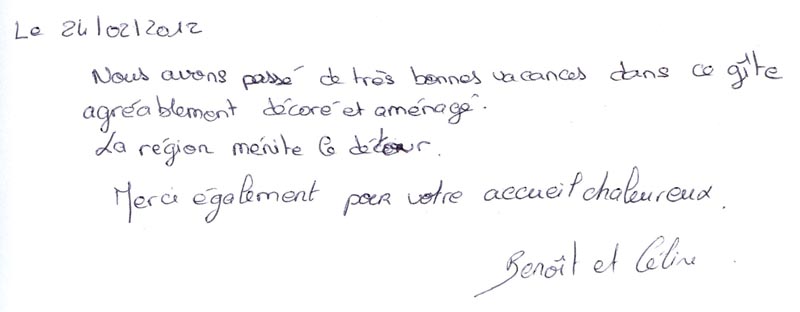 Le 24/02/2012
Nous avons passé de très bonnes vacances dans ce gîte
agréablement décoré et aménagé.
La région mérite le détour.
Merci également pour votre accueil chaleureux.
Benoît et Céline.